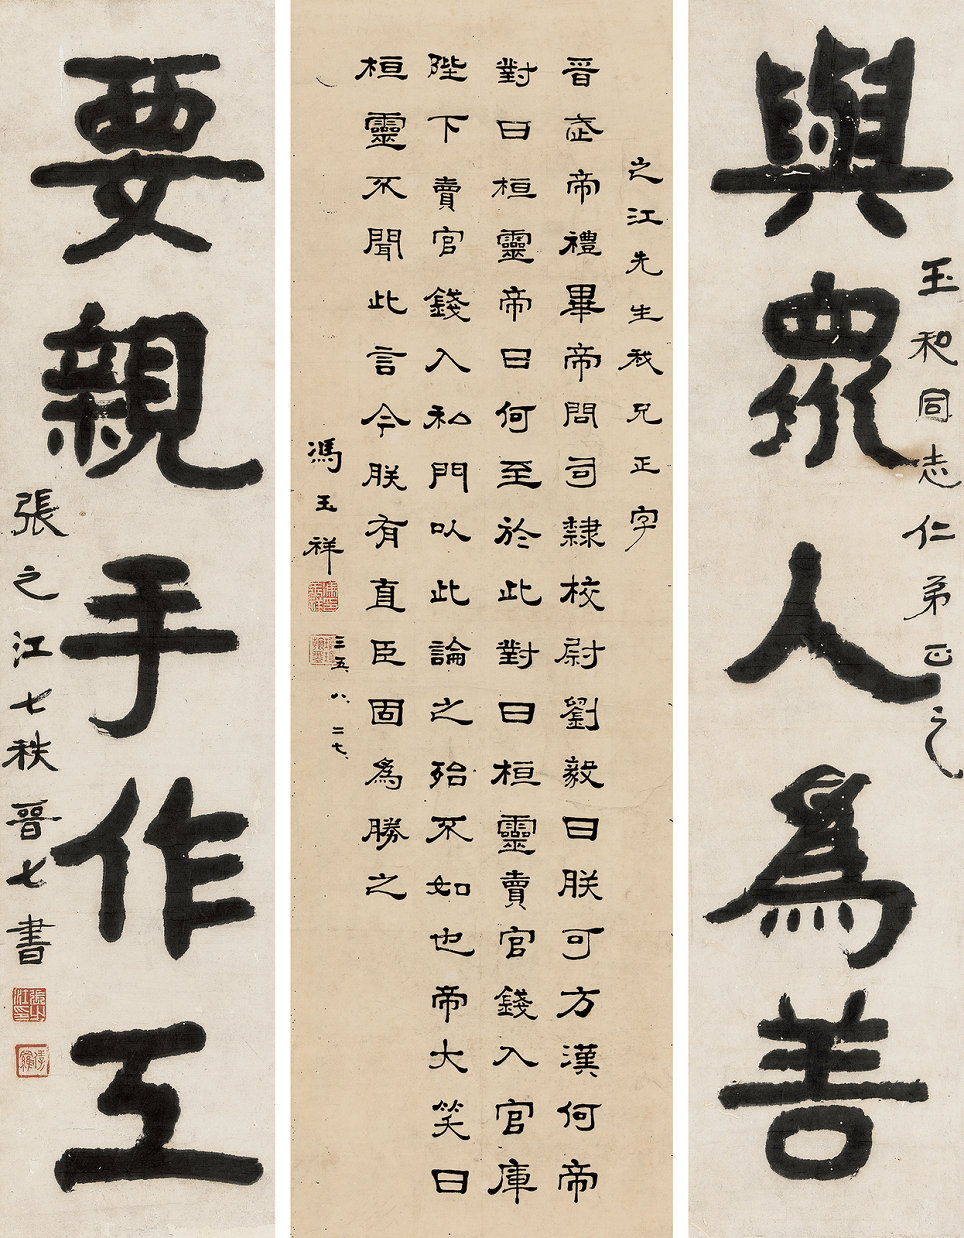 玉和同志仁弟正之
與眾人爲善
之江先生我兄正字
晉武帝禮畢帝問司隸校尉劉毅曰朕可方漢何帝
對曰桓靈帝曰何至於此對曰桓靈賣官錢入官庫
陛下賣官錢入私門以此論之殆不如也帝大笑曰
桓靈不聞此言今朕有直臣固為勝之
馮玉祥
三五、八、二七、
要親手作工
張之江七秩晉七書
張之江印